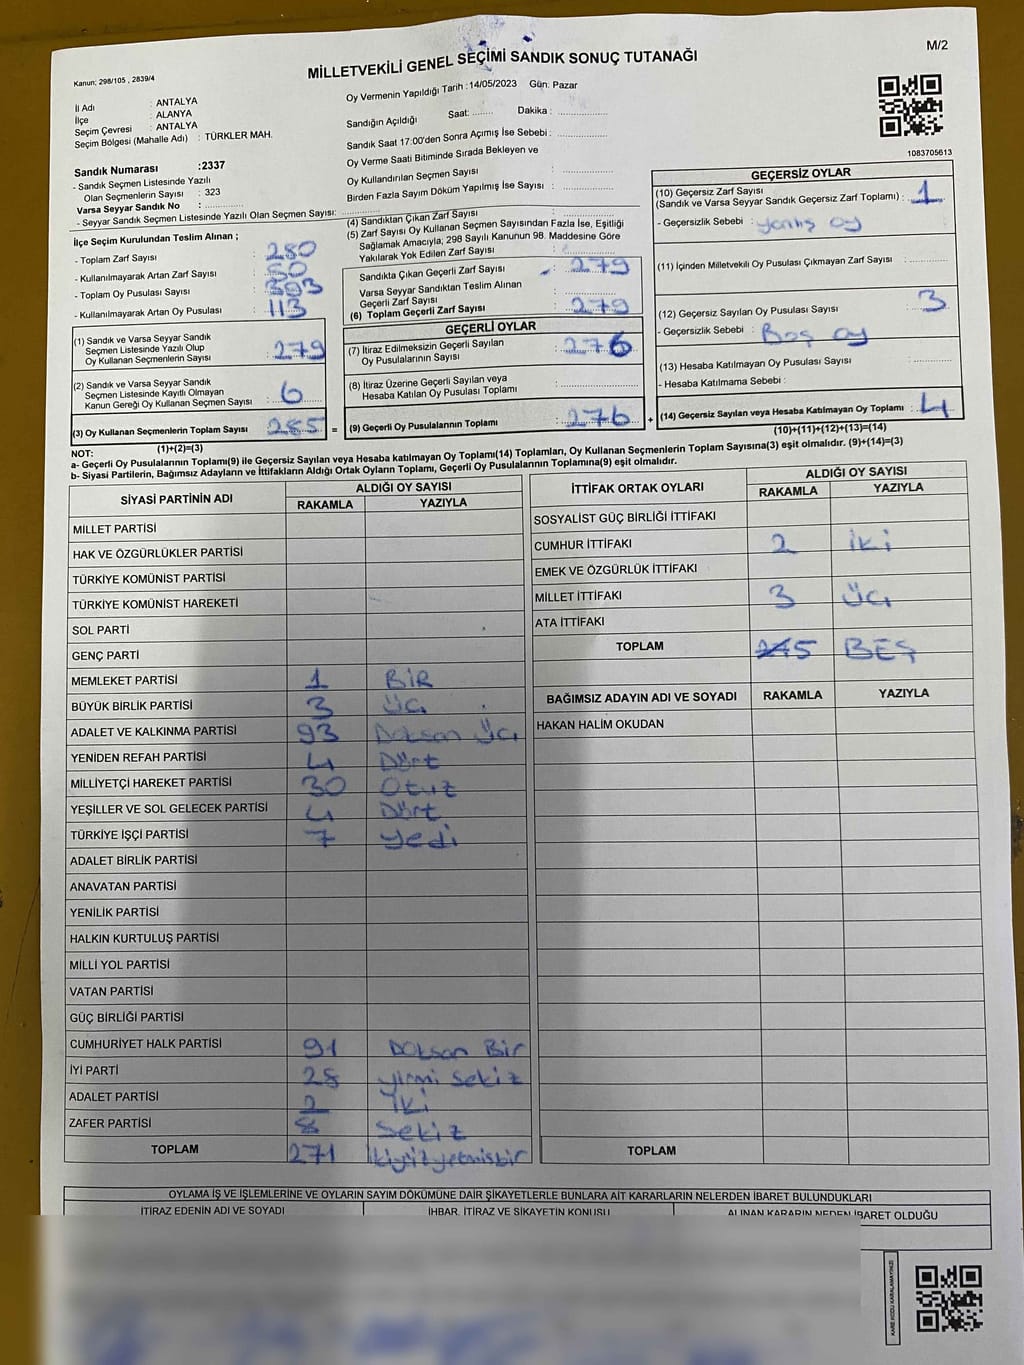 M/2
Kanun: 298/105 , 2839/4
MİLLETVEKİLİ GENEL SEÇİMİ SANDIK SONUÇ TUTANAĞI
İl Adı : ANTALYA
İlçe : ALANYA
Seçim Çevresi : ANTALYA
Seçim Bölgesi (Mahalle Adı) : TÜRKLER MAH.
Sandık Numarası :2337
- Sandık Seçmen Listesinde Yazılı
Olan Seçmenlerin Sayısı : 323
Varsa Seyyar Sandık No :
- Seyyar Sandık Seçmen Listesinde Yazılı Olan Seçmen Sayısı:
Oy Vermenin Yapıldığı Tarih :14/05/2023 Gün: Pazar
Sandığın Açıldığı Saat: Dakika :
Sandık Saat 17:00'den Sonra Açımış İse Sebebi :
Oy Verme Saati Bitiminde Sırada Bekleyen ve
Oy Kullandırılan Seçmen Sayısı :
Birden Fazla Sayım Döküm Yapılmış İse Sayısı :
1083705613
İlçe Seçim Kurulundan Teslim Alınan ;
- Toplam Zarf Sayısı :
- Kullanılmayarak Artan Zarf Sayısı :
- Toplam Oy Pusulası Sayısı : 393
- Kullanılmayarak Artan Oy Pusulası : 113
(1) Sandık ve Varsa Seyyar Sandık
Seçmen Listesinde Yazılı Olup
Oy Kullanan Seçmenlerin Sayısı : 279
(2) Sandık ve Varsa Seyyar Sandık
Seçmen Listesinde Kayıtlı Olmayan
Kanun Gereği Oy Kullanan Seçmen Sayısı : 6
(3) Oy Kullanan Seçmenlerin Toplam Sayısı : 285 =
(1)+(2)=(3)
(4) Sandıktan Çıkan Zarf Sayısı :
(5) Zarf Sayısı Oy Kullanan Seçmen Sayısından Fazla İse, Eşitliği
Sağlamak Amacıyla; 298 Sayılı Kanunun 98. Maddesine Göre
Yakılarak Yok Edilen Zarf Sayısı :
Sandıkta Çıkan Geçerli Zarf Sayısı 279
Varsa Seyyar Sandıktan Teslim Alınan
Geçerli Zarf Sayısı :
(6) Toplam Geçerli Zarf Sayısı : 279
GEÇERLİ OYLAR
(7) İtiraz Edilmeksizin Geçerli Sayılan
Oy Pusulalarının Sayısı : 276
(8) İtiraz Üzerine Geçerli Sayılan veya
Hesaba Katılan Oy Pusulası Toplamı :
(9) Geçerli Oy Pusulalarının Toplamı : 276 +
GEÇERSİZ OYLAR
(10) Geçersiz Zarf Sayısı
(Sandık ve Varsa Seyyar Sandık Geçersiz Zarf Toplamı) : 1
- Geçersizlik Sebebi : yanlış oy
(11) İçinden Milletvekili Oy Pusulası Çıkmayan Zarf Sayısı :
(12) Geçersiz Sayılan Oy Pusulası Sayısı : 3
- Geçersizlik Sebebi : Boş oy
(13) Hesaba Katılmayan Oy Pusulası Sayısı :
- Hesaba Katılmama Sebebi :
(14) Geçersiz Sayılan veya Hesaba Katılmayan Oy Toplamı : 4
(10)+(11)+(12)+(13)=(14)
NOT:
a- Geçerli Oy Pusulalarının Toplamı(9) ile Geçersiz Sayılan veya Hesaba katılmayan Oy Toplamı(14) Toplamları, Oy Kullanan Seçmenlerin Toplam Sayısına(3) eşit olmalıdır. (9)+(14)=(3)
b- Siyasi Partilerin, Bağımsız Adayların ve İttifakların Aldığı Ortak Oyların Toplamı, Geçerli Oy Pusulalarının Toplamına(9) eşit olmalıdır.
SİYASİ PARTİNİN ADI ALDIĞI OY SAYISI
RAKAMLA YAZIYLA
MİLLET PARTİSİ
HAK VE ÖZGÜRLÜKLER PARTİSİ
TÜRKİYE KOMÜNİST PARTİSİ
TÜRKİYE KOMÜNİST HAREKETİ
SOL PARTİ
GENÇ PARTİ
MEMLEKET PARTİSİ 1 BİR
BÜYÜK BİRLİK PARTİSİ 3 Üç
ADALET VE KALKINMA PARTİSİ 93 Doksan Üç
YENİDEN REFAH PARTİSİ 4 Dört
MİLLİYETÇİ HAREKET PARTİSİ 30 Otuz
YEŞİLLER VE SOL GELECEK PARTİSİ 4 Dört
TÜRKİYE İŞÇİ PARTİSİ 7 yedi
ADALET BİRLİK PARTİSİ
ANAVATAN PARTİSİ
YENİLİK PARTİSİ
HALKIN KURTULUŞ PARTİSİ
MİLLİ YOL PARTİSİ
VATAN PARTİSİ
GÜÇ BİRLİĞİ PARTİSİ
CUMHURİYET HALK PARTİSİ 91 Doksan Bir
İYİ PARTİ 28 yirmi sekiz
ADALET PARTİSİ 2 İki
ZAFER PARTİSİ 8 Sekiz
TOPLAM 271 ikiyüzyetmişbir
İTTİFAK ORTAK OYLARI ALDIĞI OY SAYISI
RAKAMLA YAZIYLA
SOSYALİST GÜÇ BİRLİĞİ İTTİFAKI
CUMHUR İTTİFAKI 2 İki
EMEK VE ÖZGÜRLÜK İTTİFAKI
MİLLET İTTİFAKI 3 Üç
ATA İTTİFAKI
TOPLAM 5 BEŞ
BAĞIMSIZ ADAYIN ADI VE SOYADI RAKAMLA YAZIYLA
HAKAN HALİM OKUDAN
TOPLAM
OYLAMA İŞ VE İŞLEMLERİNE VE OYLARIN SAYIM DÖKÜMÜNE DAİR ŞİKAYETLERLE BUNLARA AİT KARARLARIN NELERDEN İBARET BULUNDUKLARI
İTİRAZ EDENİN ADI VE SOYADI İHBAR, İTİRAZ VE ŞİKAYETİN KONUSU ALINAN KARARIN NEDEN İBARET OLDUĞU
KARE KODU KARALAMAYINIZ!